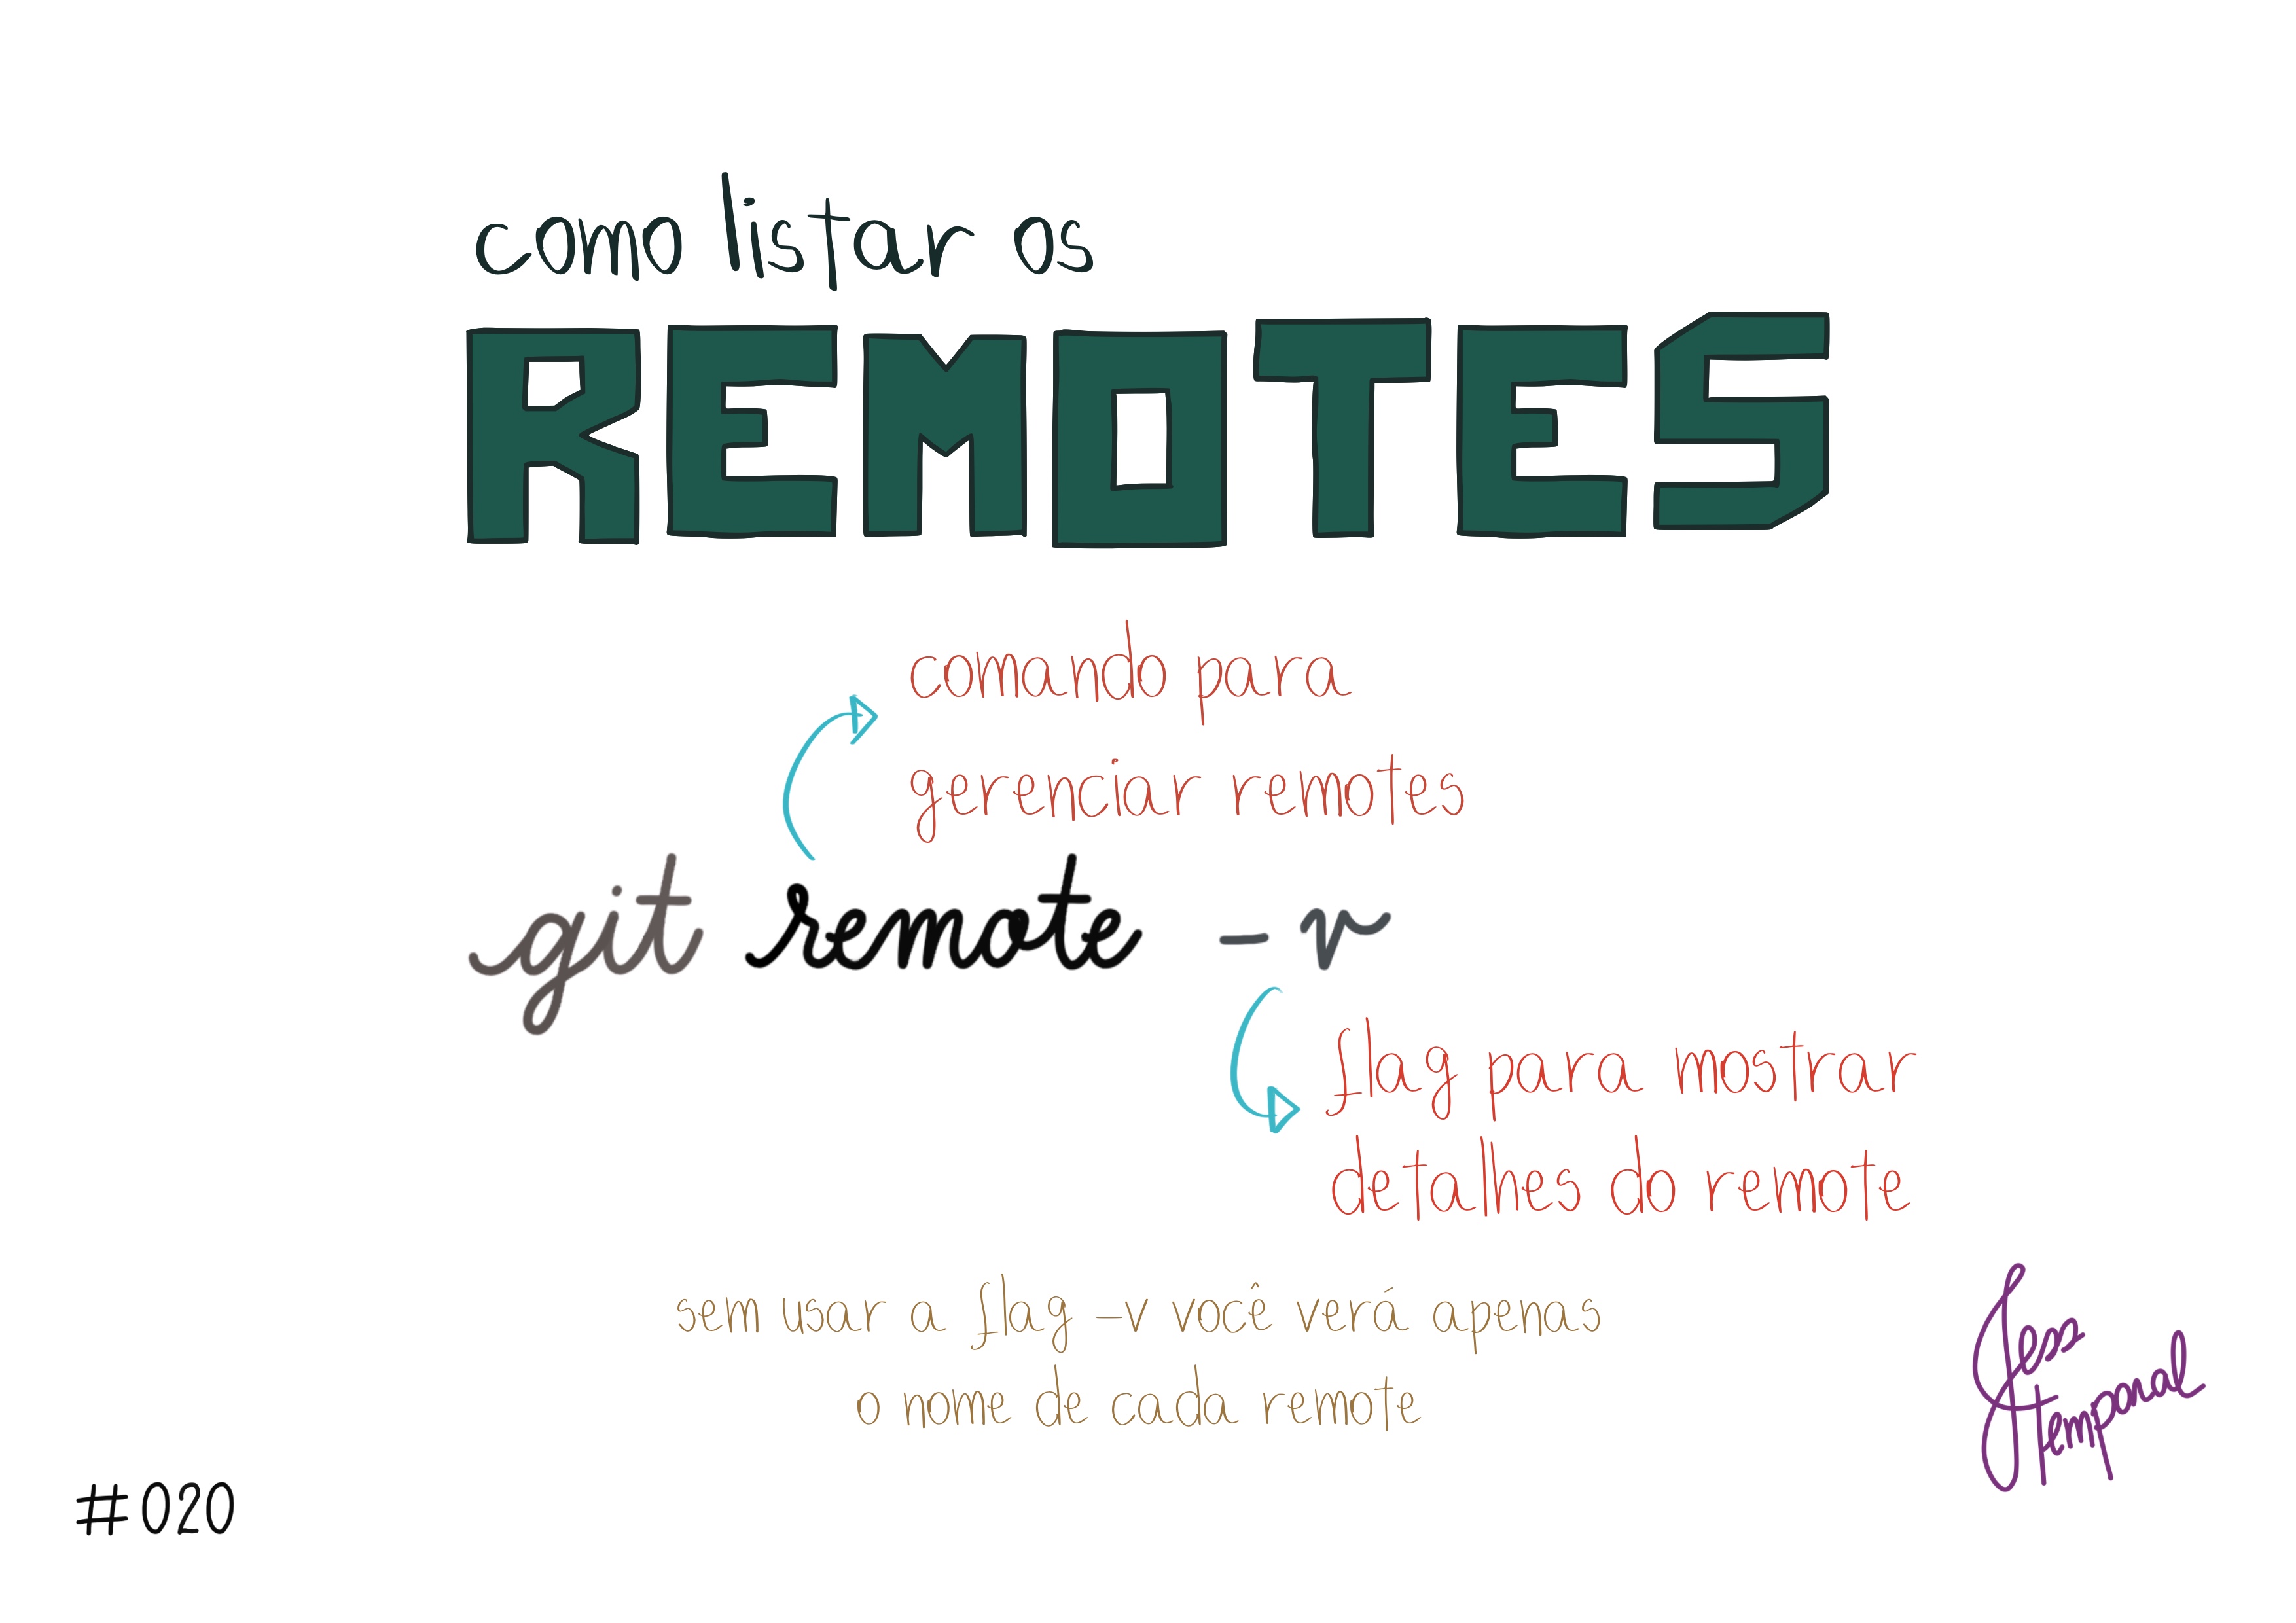 como listar os
REMOTES
comando para
gerenciar remotes
git remote -v
flag para mostrar
detalhes do remote
sem usar a flag -v você verá apenas
o nome de cada remote
Jess
temporal
#020